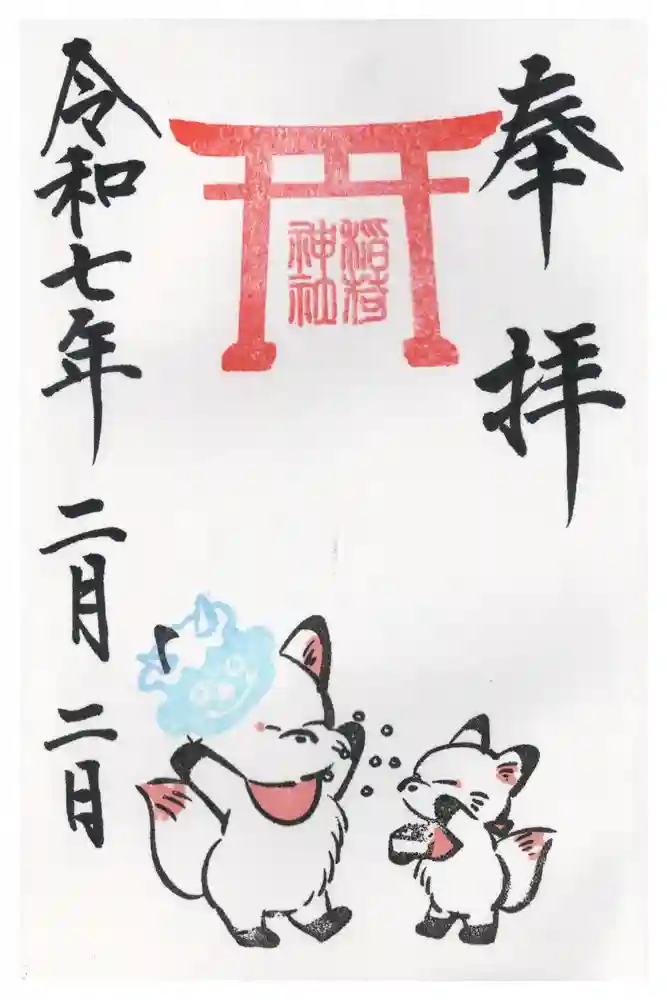 奉拝
稲荷
神社
令和七年 二月 二日